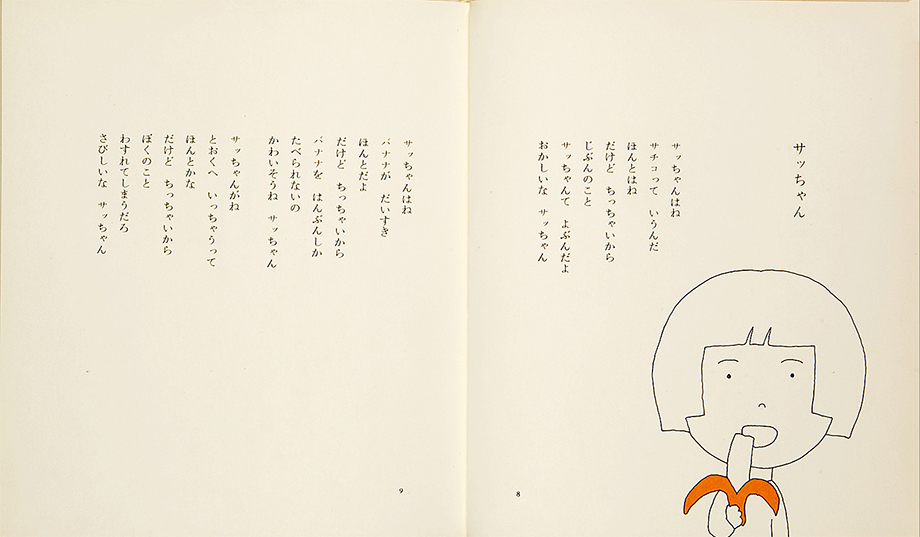 サッちゃん
サッちゃんはね
サチコって　いうんだ
ほんとはね
だけど　ちっちゃいから
じぶんのこと
サッちゃんて　よぶんだよ
おかしいな　サッちゃん
8
サッちゃんはね
バナナが　だいすき
ほんとだよ
だけど　ちっちゃいから
バナナを　はんぶんしか
たべられないの
かわいそうね　サッちゃん
サッちゃんがね
とおくへ　いっちゃうって
ほんとかな
だけど　ちっちゃいから
ぼくのこと
わすれてしまうだろ
さびしいな　サッちゃん
9